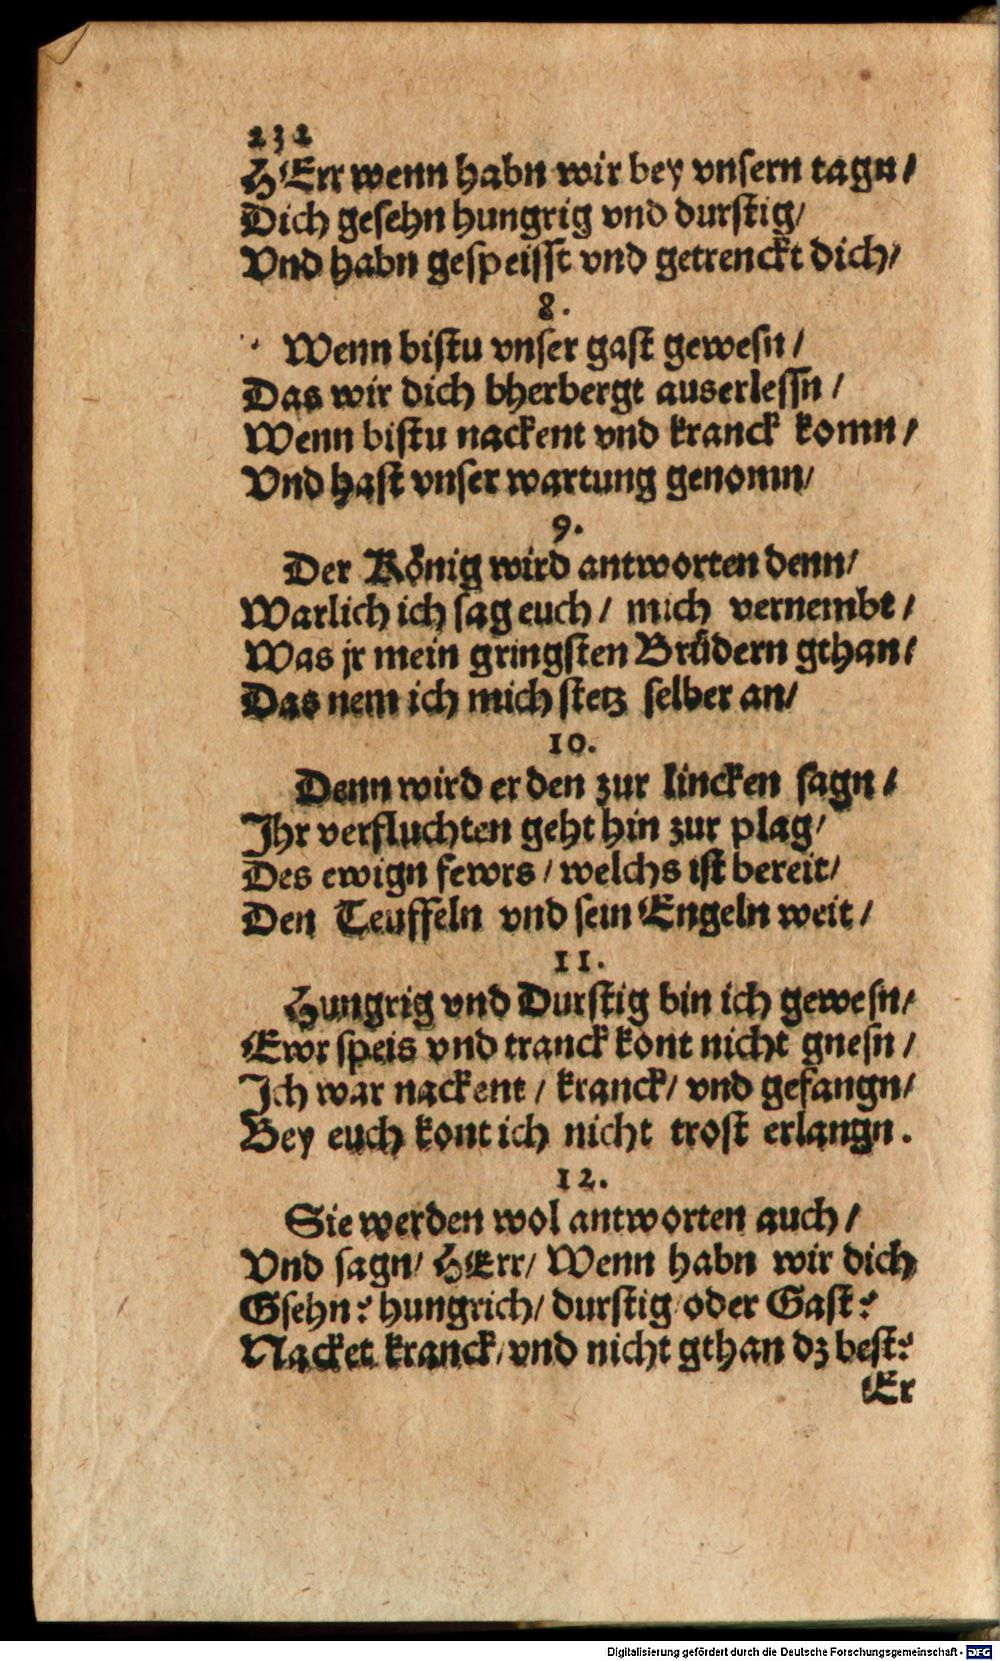 232
HErr wenn habn wir bey vnsern tagn/
Dich gesehn hungrig vnd durstig/
Vnd habn gespeisst vnd getrenckt dich/
8.
Wenn bistu vnser gast gewesn/
Das wir dich bherbergt auserlessn/
Wenn bistu nackent vnd kranck komn/
Vnd hast vnser wartung genomn/
9.
Der König wird antworten denn/
Warlich ich sag euch/ mich vernembt/
Was jr mein gringsten Brüdern gthan/
Das nem ich mich stetz selber an/
10.
Denn wird er den zur lincken sagn/
Ihr verfluchten geht hin zur plag/
Des ewign fewrs/ welchs ist bereit/
Den Teuffeln vnd sein Engeln weit/
11.
Hungrig vnd Durstig bin ich gewesn/
Ewr speis vnd tranck kont nicht gnesn/
Ich war nackent/ kranck/ vnd gefangn/
Bey euch kont ich nicht trost erlangn.
12.
Sie werden wol antworten auch/
Vnd sagn/ HErr/ Wenn habn wir dich
Gsehn? hungrich/ durstig/ oder Gast?
Nacket kranck/ vnd nicht gthan dz best?
Er
Digitalisierung gefördert durch die Deutsche Forschungsgemeinschaft - DFG